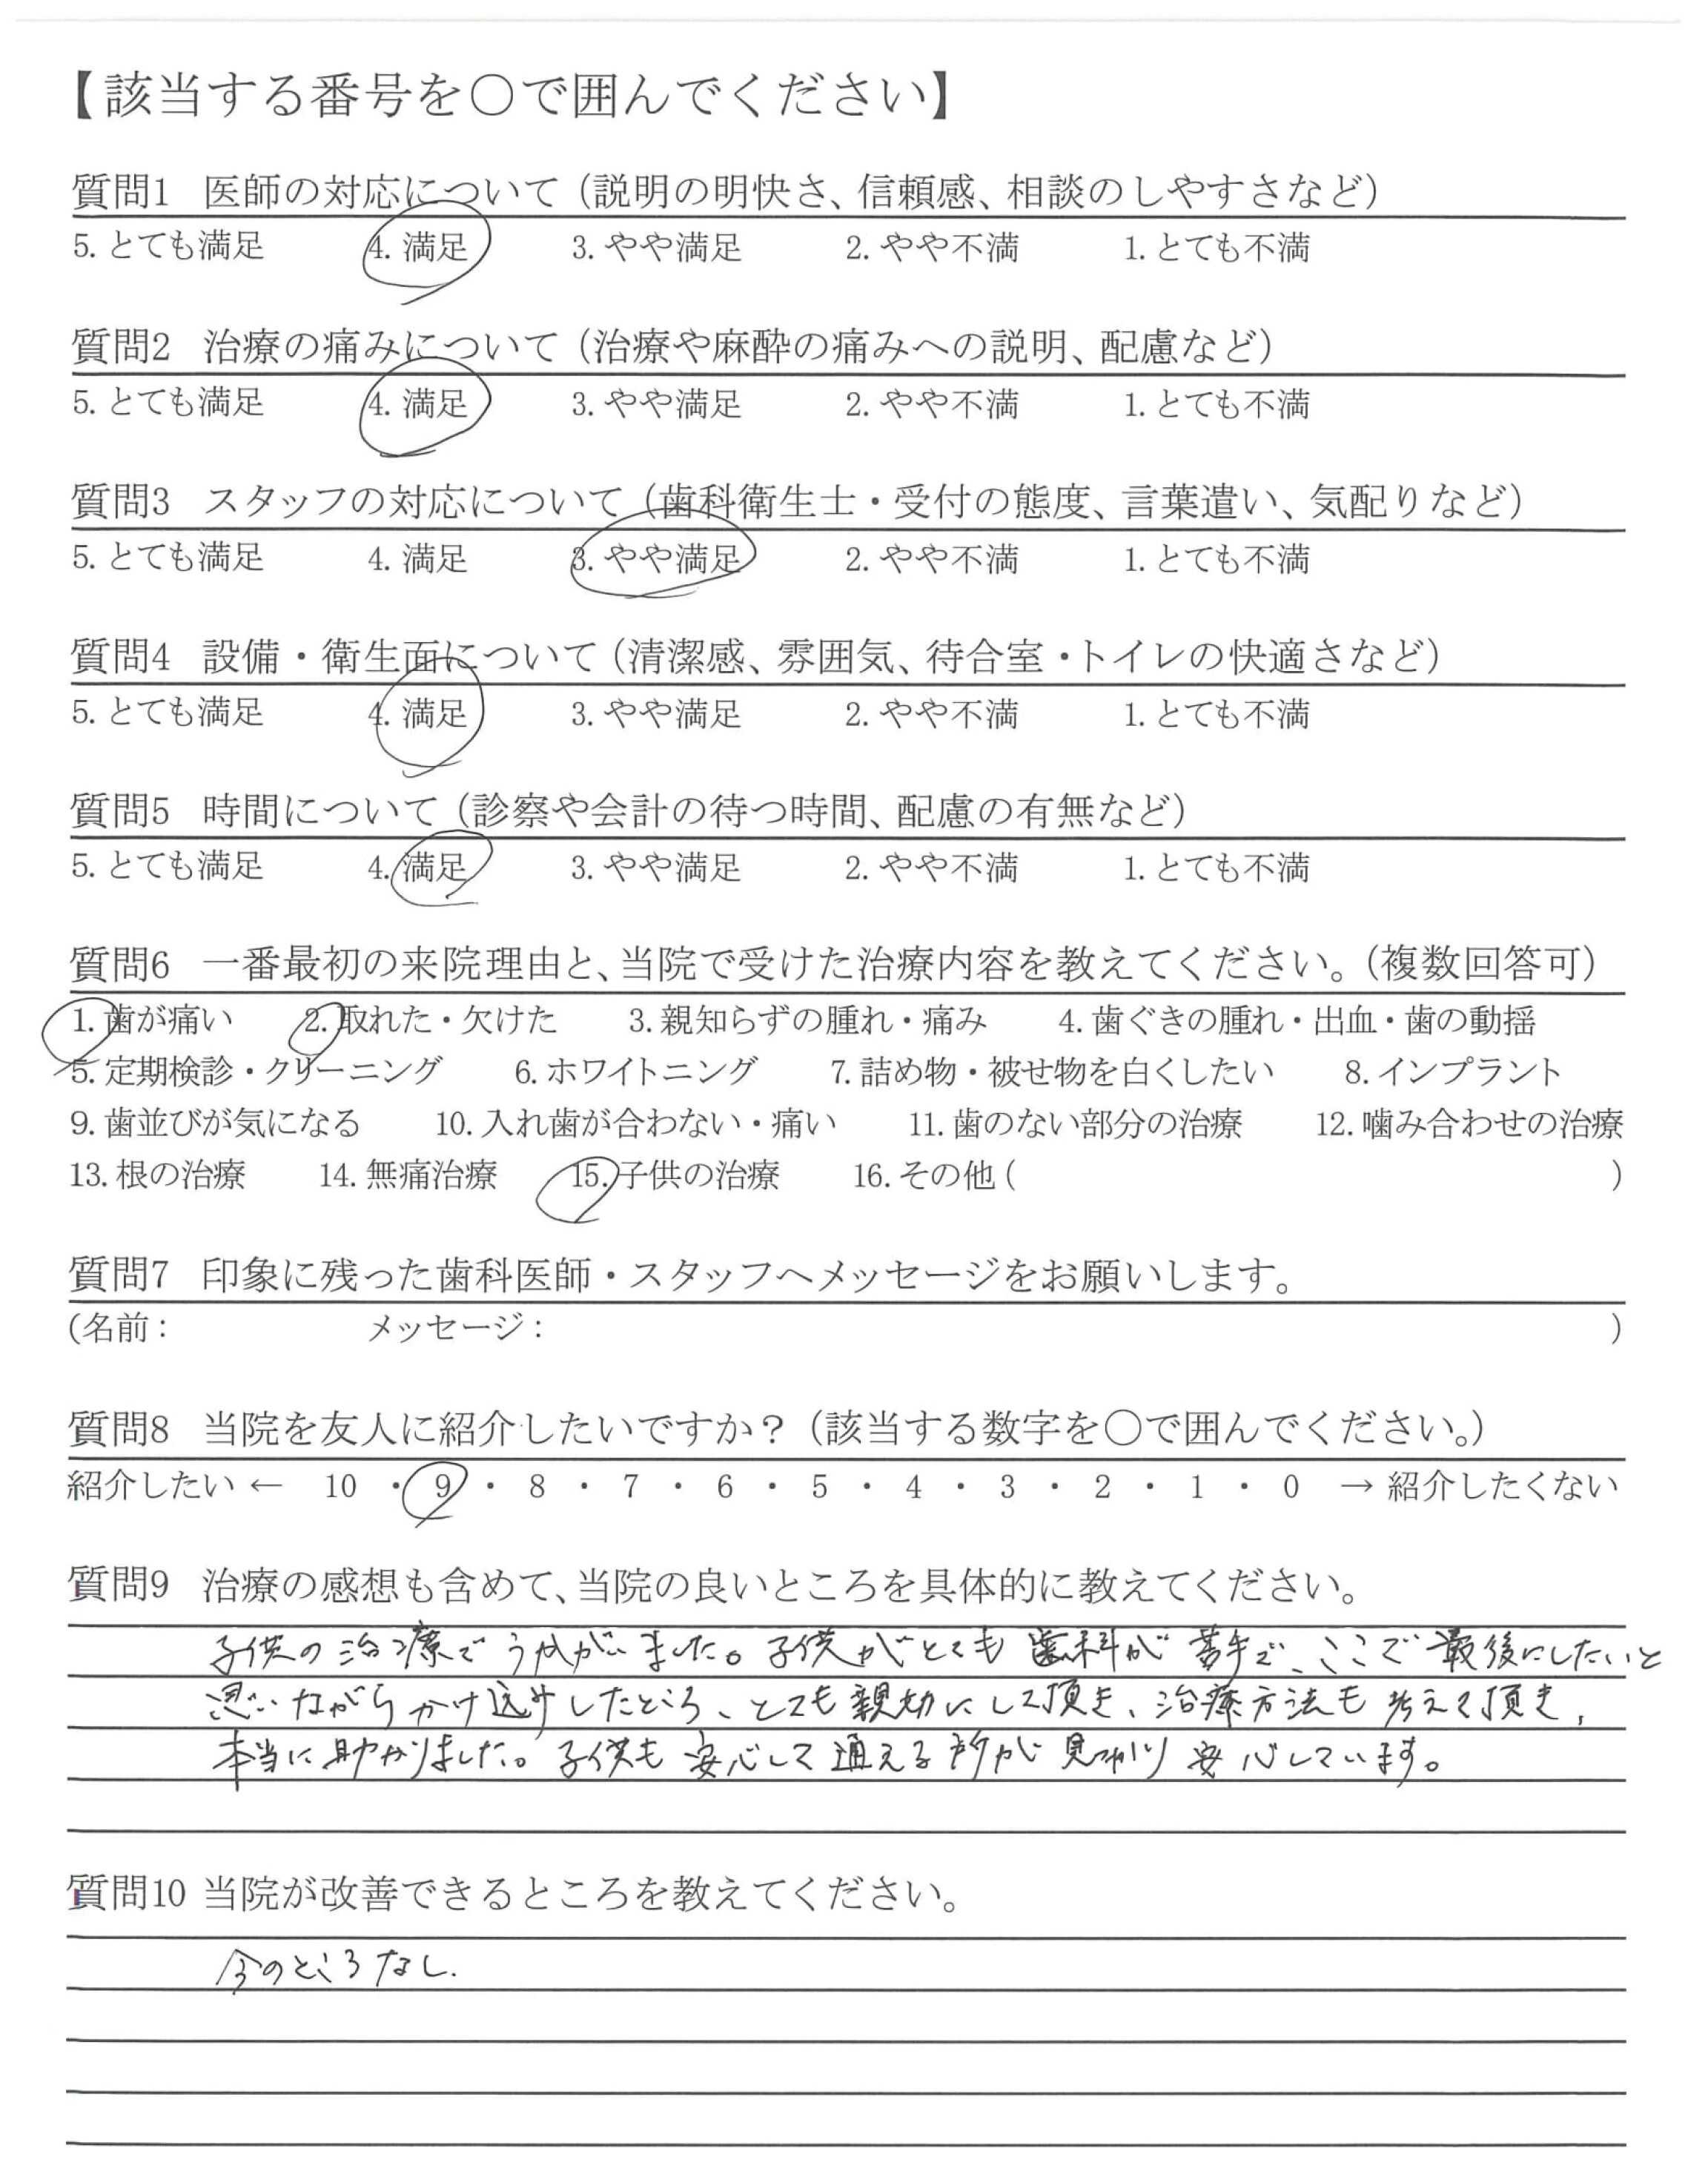 【該当する番号を○で囲んでください】
質問1 医師の対応について（説明の明快さ、信頼感、相談のしやすさなど）
5. とても満足 4. 満足 3. やや満足 2. やや不満 1. とても不満
質問2 治療の痛みについて（治療や麻酔の痛みへの説明、配慮など）
5. とても満足 4. 満足 3. やや満足 2. やや不満 1. とても不満
質問3 スタッフの対応について（歯科衛生士・受付の態度、言葉遣い、気配りなど）
5. とても満足 4. 満足 3. やや満足 2. やや不満 1. とても不満
質問4 設備・衛生面について（清潔感、雰囲気、待合室・トイレの快適さなど）
5. とても満足 4. 満足 3. やや満足 2. やや不満 1. とても不満
質問5 時間について（診察や会計の待つ時間、配慮の有無など）
5. とても満足 4. 満足 3. やや満足 2. やや不満 1. とても不満
質問6 一番最初の来院理由と、当院で受けた治療内容を教えてください。（複数回答可）
1. 歯が痛い 2. 取れた・欠けた 3. 親知らずの腫れ・痛み 4. 歯ぐきの腫れ・出血・歯の動揺
5. 定期検診・クリーニング 6. ホワイトニング 7. 詰め物・被せ物を白くしたい 8. インプラント
9. 歯並びが気になる 10. 入れ歯が合わない・痛い 11. 歯のない部分の治療 12. 噛み合わせの治療
13. 根の治療 14. 無痛治療 15. 子供の治療 16. その他（ ）
質問7 印象に残った歯科医師・スタッフへメッセージをお願いします。
（名前： メッセージ： ）
質問8 当院を友人に紹介したいですか？（該当する数字を○で囲んでください。）
紹介したい ← 10 ・ 9 ・ 8 ・ 7 ・ 6 ・ 5 ・ 4 ・ 3 ・ 2 ・ 1 ・ 0 → 紹介したくない
質問9 治療の感想も含めて、当院の良いところを具体的に教えてください。
子供の治療でうかがいました。子供がとても歯科が苦手で、ここで最後にしたいと
思いながらかけ込みしたところ、とても親切にして頂き、治療方法も考えて頂き、
本当に助かりました。子供も安心して通える所が見つかり安心しています。
質問10 当院が改善できるところを教えてください。
今のところなし.